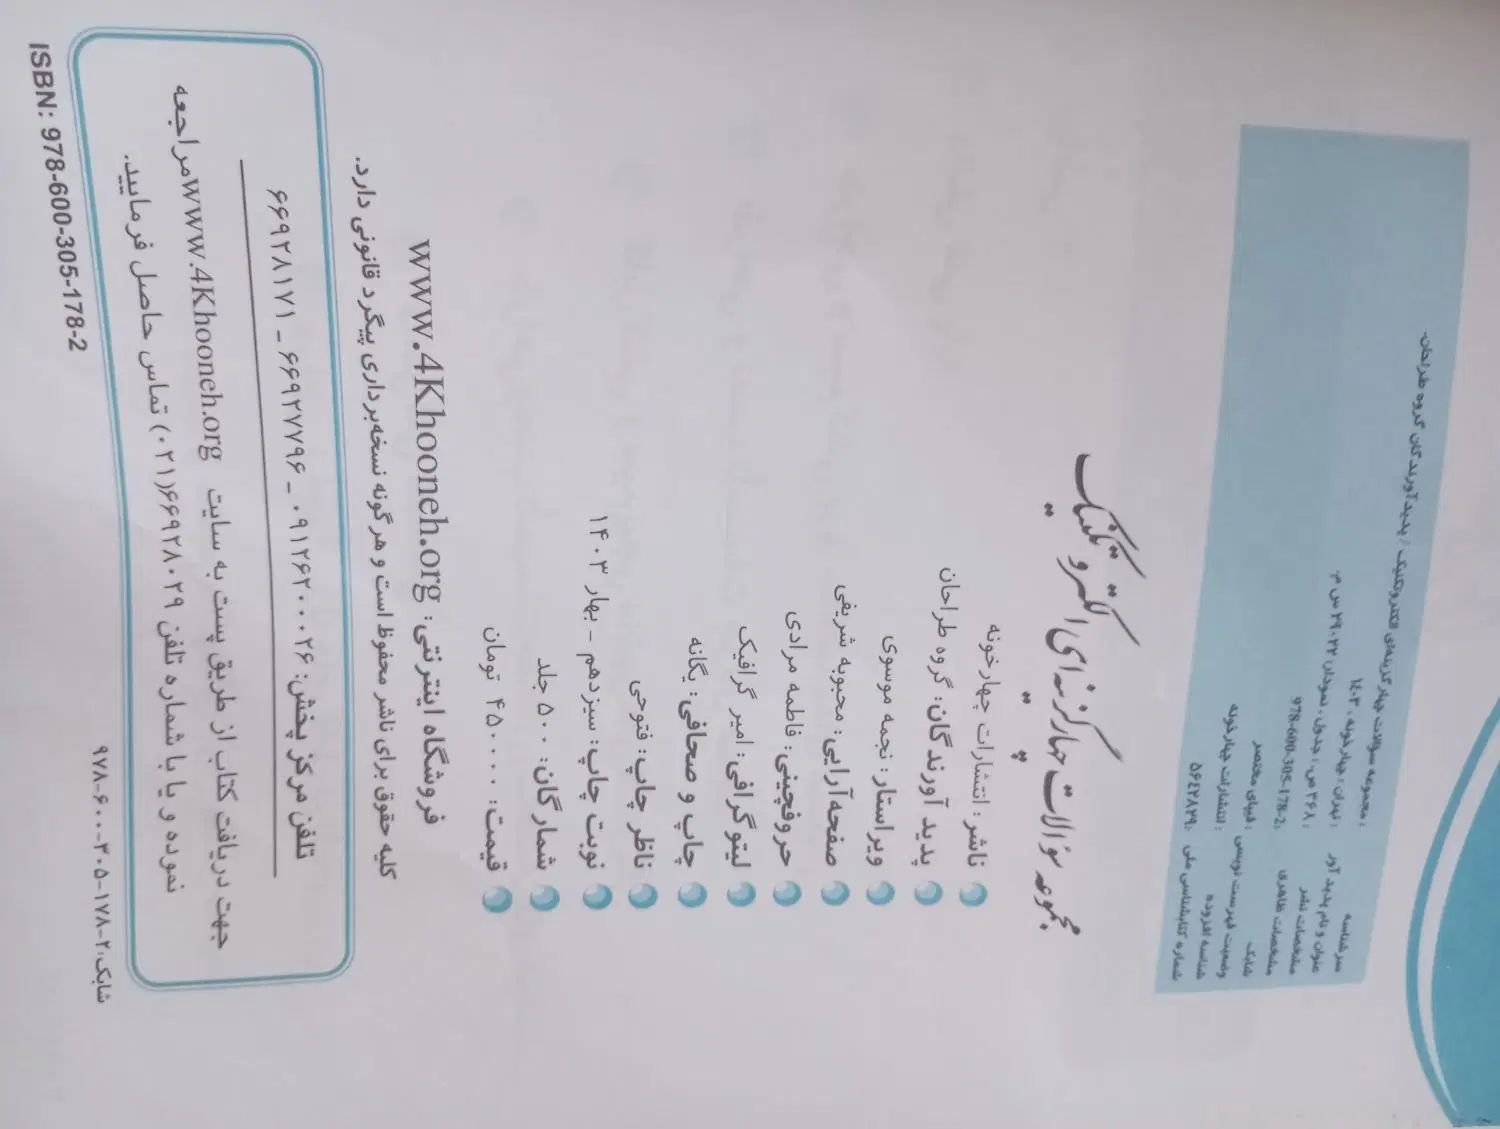 سرشناسه
عنوان و نام پدیدآور : مجموعه سؤالات چهارگزینه‌ای الکتروتکنیک / پدیدآورندگان گروه طراحان.
مشخصات نشر : تهران : چهارخونه ، ۱۴۰۳
مشخصات ظاهری : ۳۶۸ ص : جدول ، نمودار؛ ۲۲×۲۹ س م.
شابک : 978-600-305-178-2
وضعیت فهرست نویسی : فیپای مختصر
شناسه افزوده : انتشارات چهارخونه
شماره کتابشناسی ملی : ۵۶۴۲۸۲۹
مجموعه سؤالات چهارگزینه‌ای الکتروتکنیک
ناشر: انتشارات چهارخونه
پدیدآورندگان: گروه طراحان
ویراستار: نجمه موسوی
صفحه‌آرایی: محبوبه شریفی
حروفچینی: فاطمه مرادی
لیتوگرافی: امیر گرافیک
چاپ و صحافی: یگانه
ناظر چاپ: فتوحی
نوبت چاپ: سیزدهم - بهار ۱۴۰۳
شمارگان: ۵۰۰ جلد
قیمت: ۴۵۰۰۰۰ تومان
فروشگاه اینترنتی: www.4Khooneh.org
کلیه حقوق برای ناشر محفوظ است و هرگونه نسخه‌برداری پیگرد قانونی دارد.
تلفن مرکز پخش: ۰۹۱۲۶۲۰۰۰۲۶ - ۶۶۹۲۷۷۹۶ - ۶۶۹۲۸۱۷۱
جهت دریافت کتاب از طریق پست به سایت www.4Khooneh.org مراجعه
نموده و یا با شماره تلفن ۶۶۹۲۸۰۲۹(۰۲۱) تماس حاصل فرمایید.
شابک: ۲-۱۷۸-۳۰۵-۶۰۰-۹۷۸
ISBN: 978-600-305-178-2